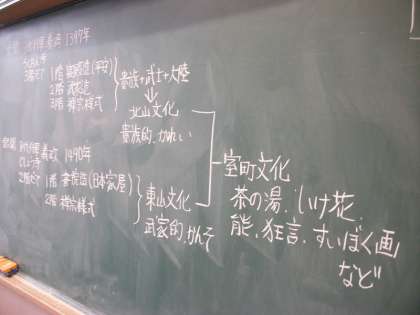 金閣 足利義満 1397年
3階建て 1階 寝殿造(平安)
2階 武家造
3階 禅宗様式
貴族+武士+大陸
↓
北山文化
貴族的.かれい
銀閣 足利義政 1490年
2階建て 1階 書院造(日本家屋)
2階 禅宗様式
東山文化
武家的.かんそ
室町文化
茶の湯、いけ花、
能、狂言、すいぼく画
など